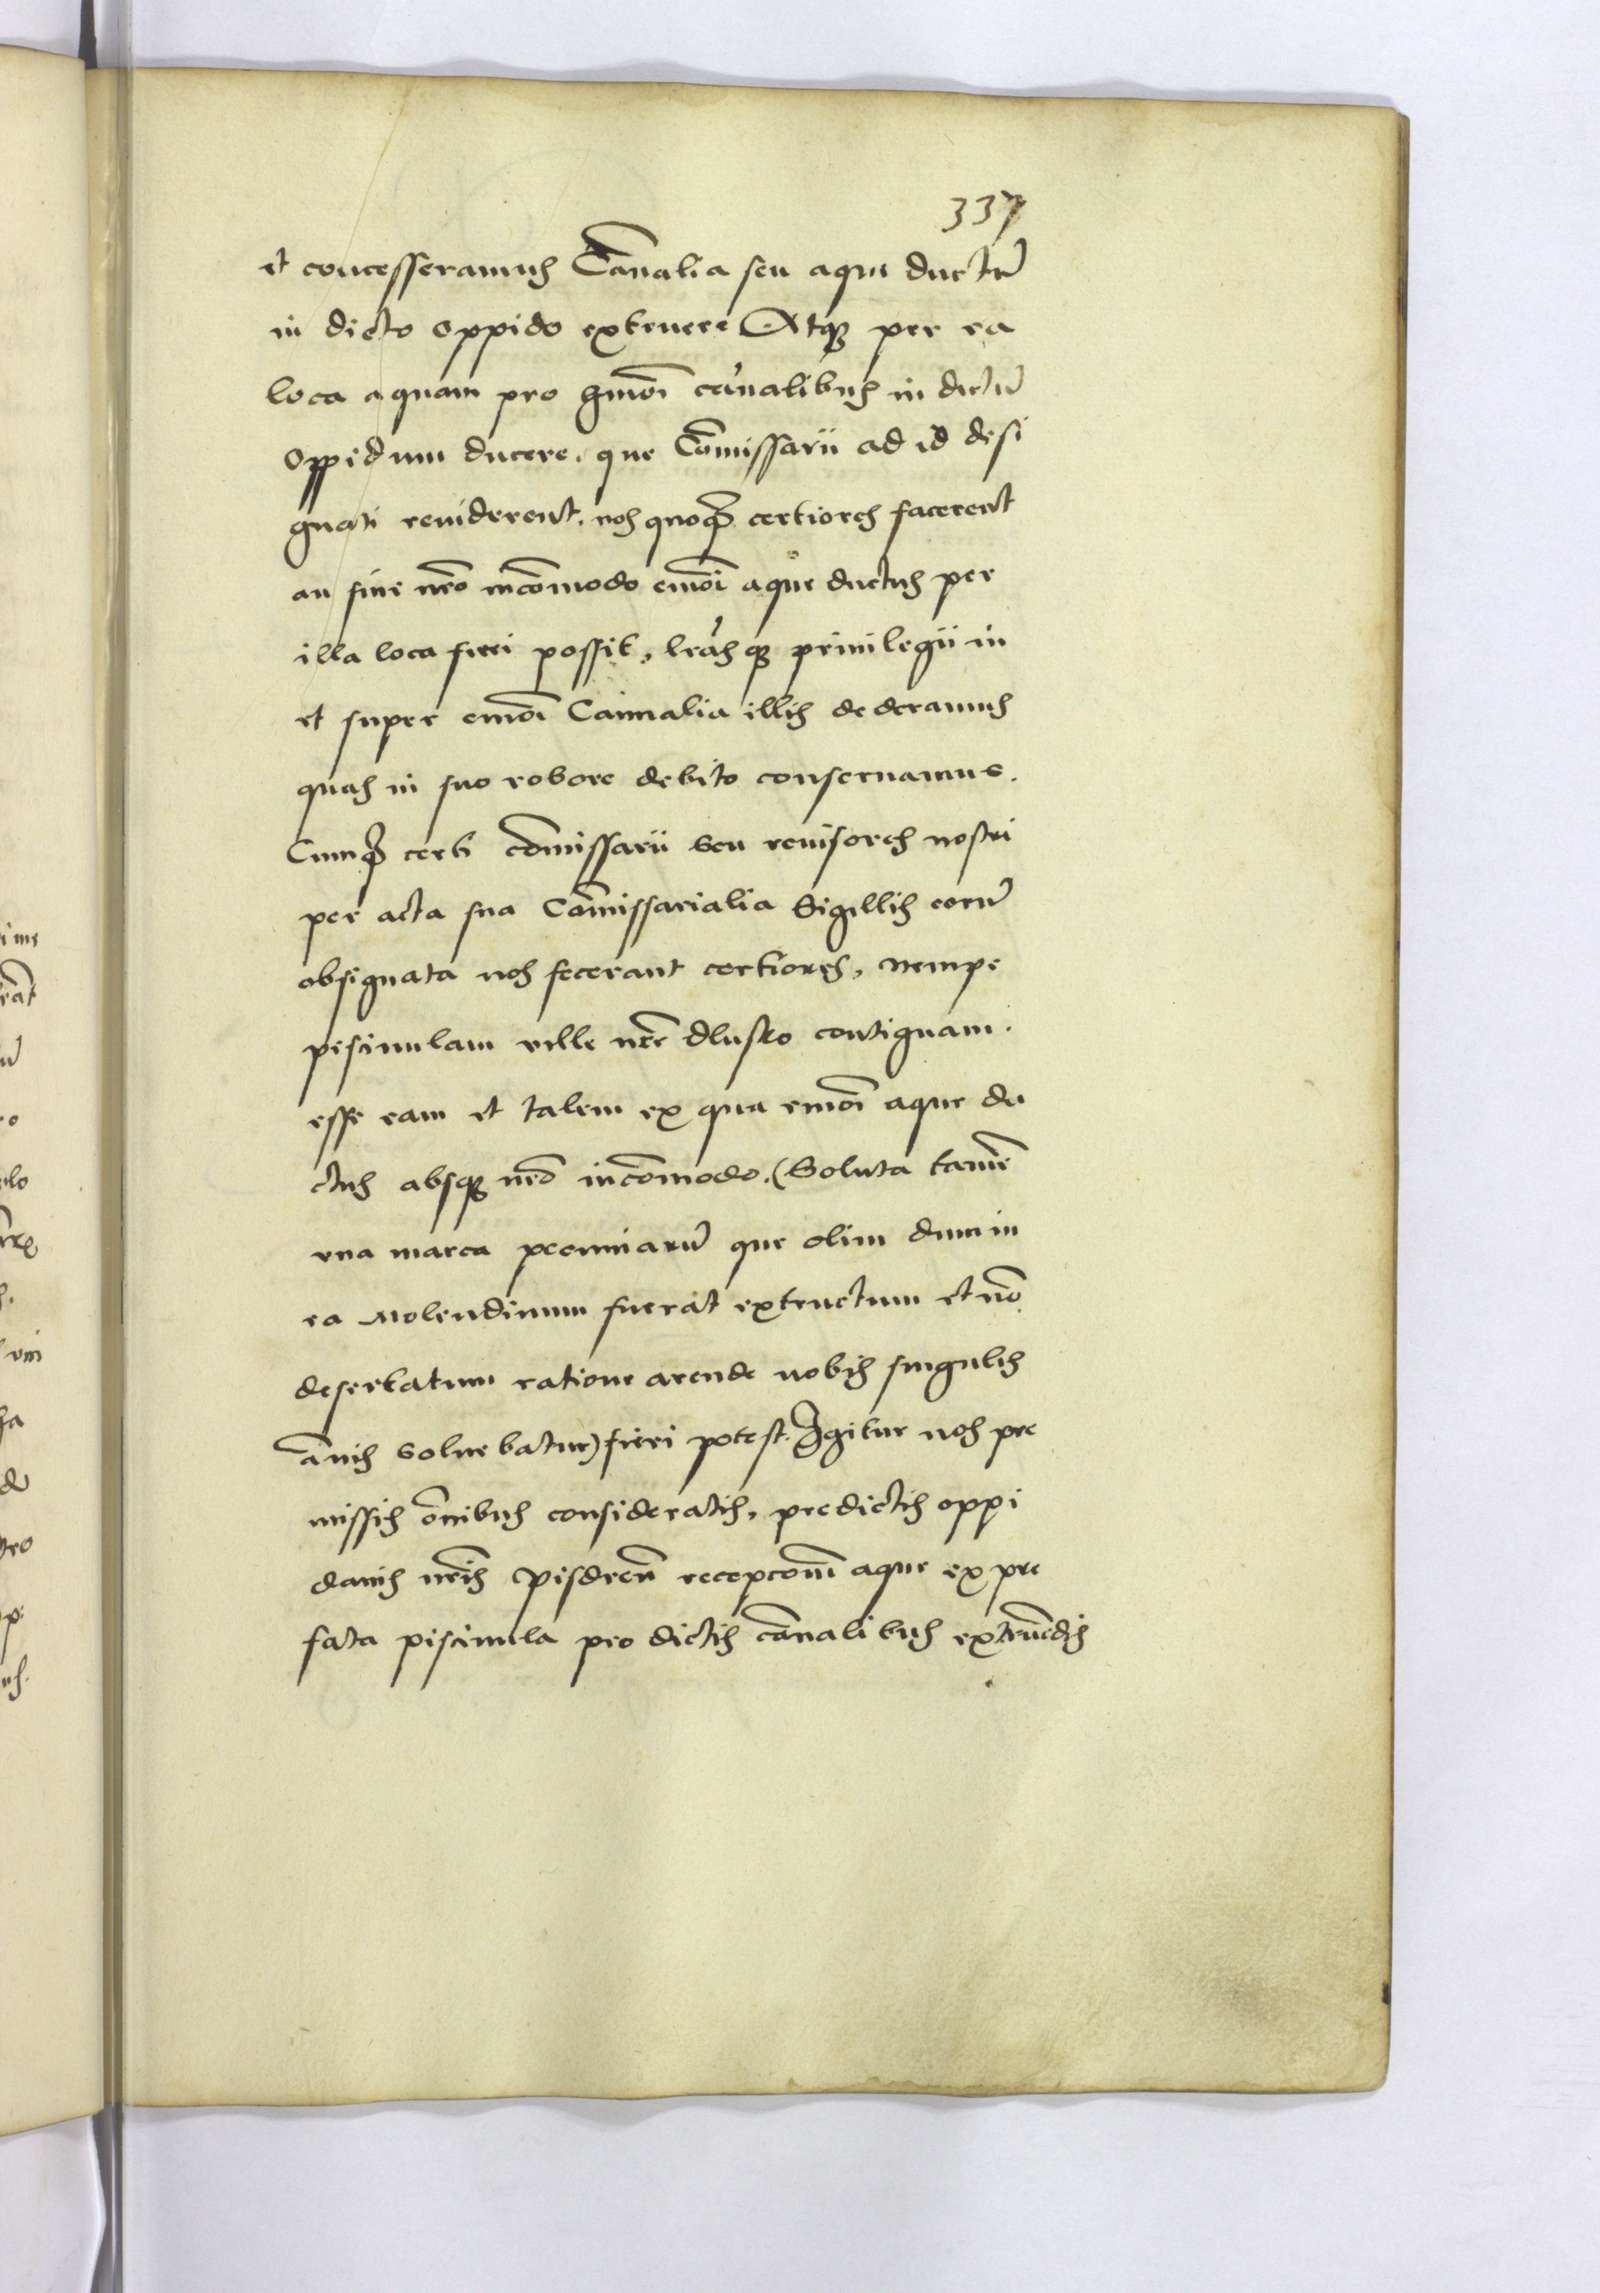 337
et concesseramus Can̄alia seu aque ductū
in dicto oppido extruere Atqꝫ per ea
loca aquam pro hmōi canalibus in dictū
Oppidum ducere. que Cōmissarii ad id desi
gnati reuiderent. nos quoqꝫ certiores facerent
an sine nr̄o incōmodo eiusmōi aque ductus per
illa loca fieri possit, lrasqꝫ priuilegii in
et super eiusmōi Cannalia illis dederamus
quas in suo robore debito conseruamus.
Cumqꝫ certi cōmissarii seu reuisores nostri
per acta sua Cōmissarialia Sigillis eorū
obsignata nos fecerant certiores, nempe
piscinulam ville nr̄e Dlusko contiguam.
esse eam et talem ex qua eiusmōi aque du
ctus absqꝫ nr̄o incōmodo. (Soluta tamē
vna marca pecuniarū que olim dum in
ea Molendinum fuerat extructum et nō
desertatum ratione arende nobis singulis
ānis soluebatur) fieri potest. Igitur nos pre
missis ōnibus consideratis, predictis oppi
danis nr̄is Pisdreñ recepcōnē aque ex pre
fata piscinula pro dictis cānalibus extruēdis